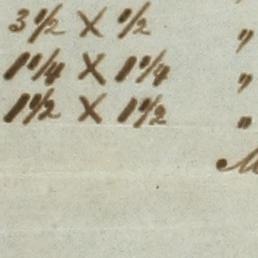 3 1/2 X 1/2 "
1 1/4 X 1 1/4 "
1 1/2 X 1 1/2 "